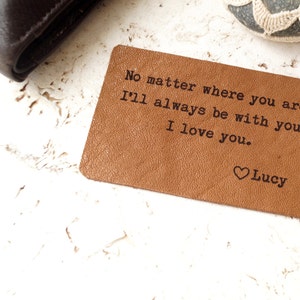 No matter where you are
I'll always be with you
I love you.
♡Lucy